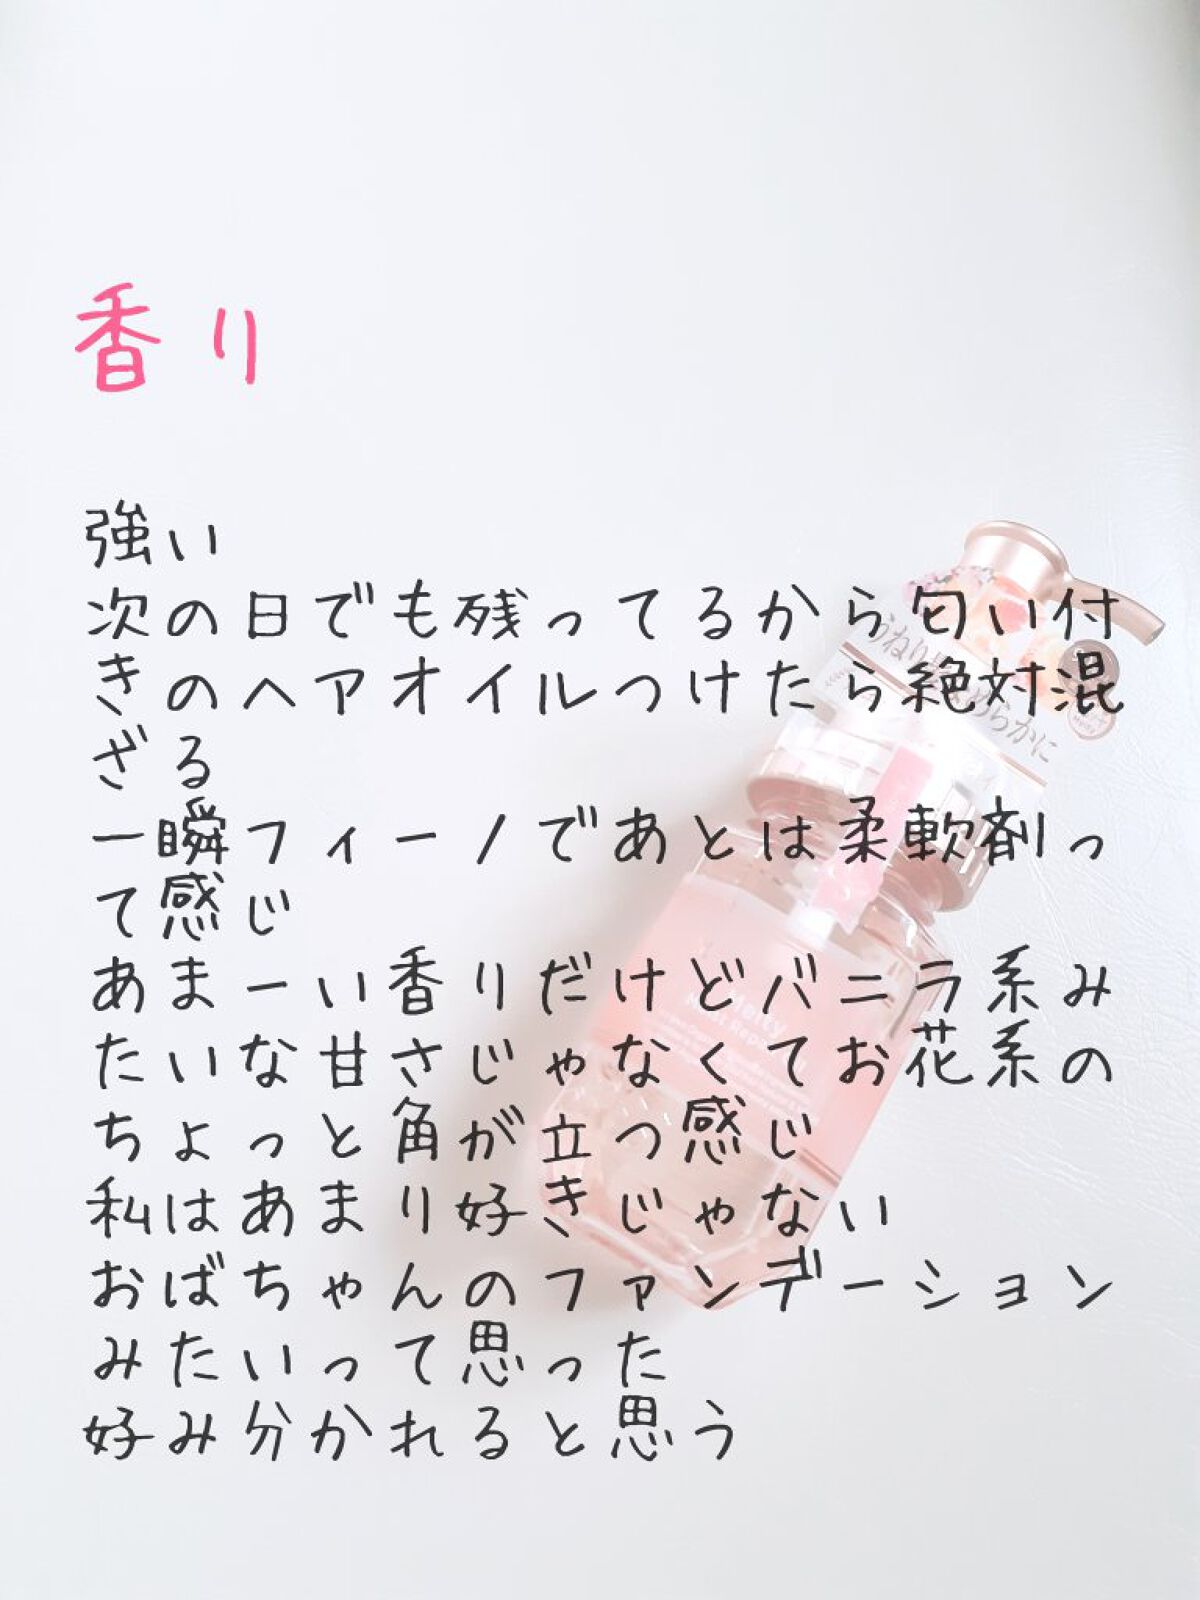 香り
強い
次の日でも残ってるから匂い付
きのヘアオイルつけたら絶対混
ざる
一瞬フィーノであとは柔軟剤っ
て感じ
あまーい香りだけどバニラ系み
たいな甘さじゃなくてお花系の
ちょっと角が立つ感じ
私はあまり好きじゃない
おばちゃんのファンデーション
みたいって思った
好み分かれると思う
うねり
めらかに
Melty
Moist Repair